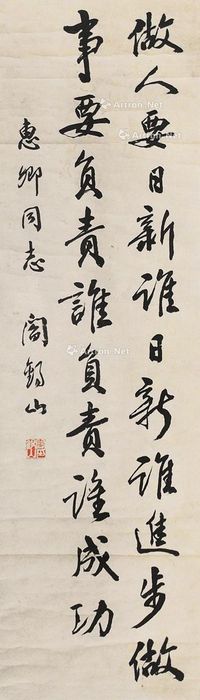 做人要日新誰日新誰進步做
事要負責誰負責誰成功
惠卿同志 閻錫山
Artron.Net